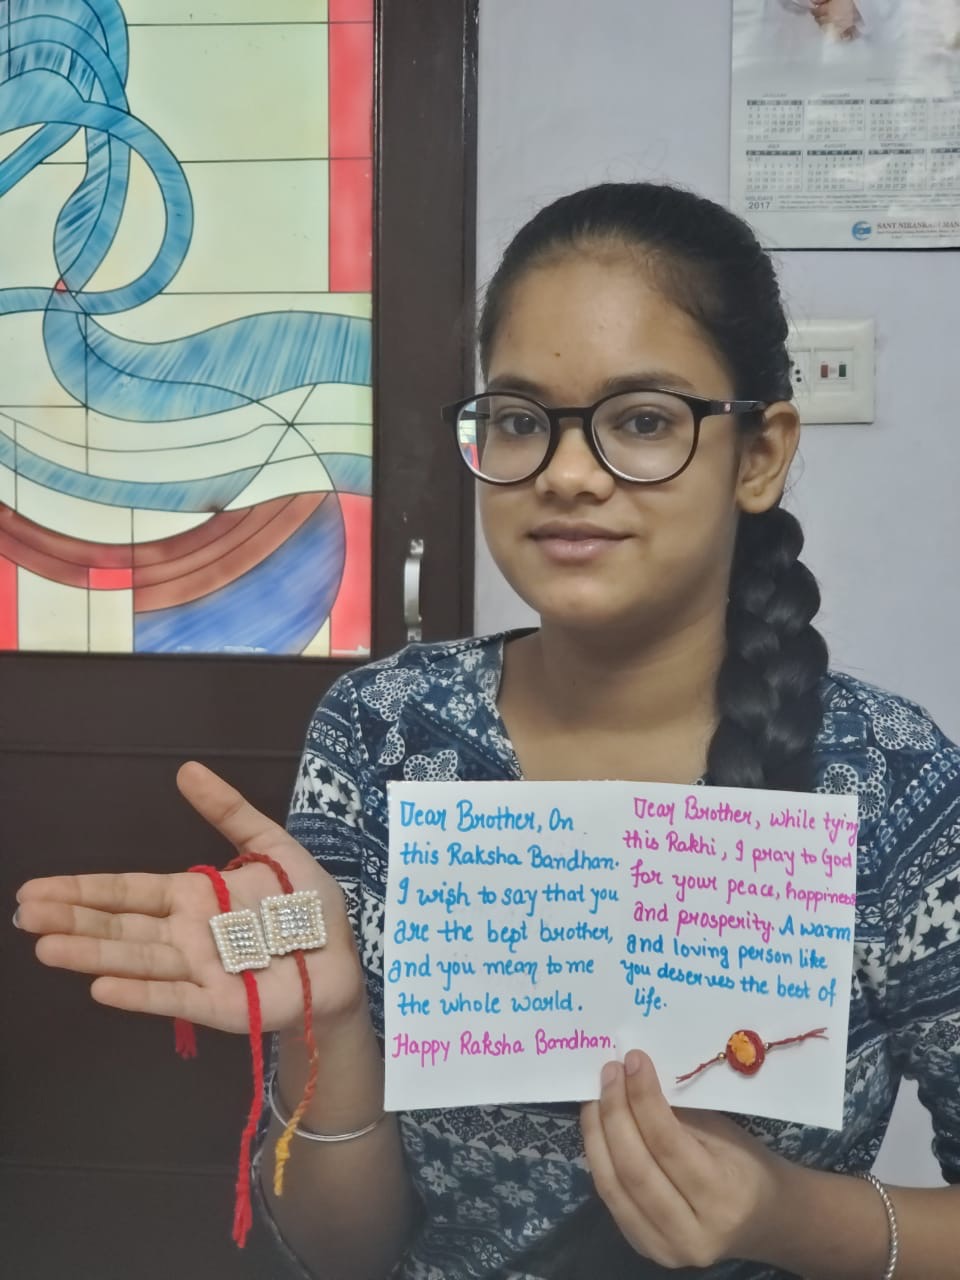 JANUARY
JULY
AUGUST
SEPTEMBER
HOLIDAYS
2017
SANT NIRANKARI MAN
Dear Brother, On
this Raksha Bandhan.
I wish to say that you
are the bept brother,
and you mean to me
the whole world.
Happy Raksha Bandhan.
Dear Brother, while tying
this Rakhi, I pray to God
for your peace, happiness
and prosperity. A warm
and loving person like
you deserves the best of
life.